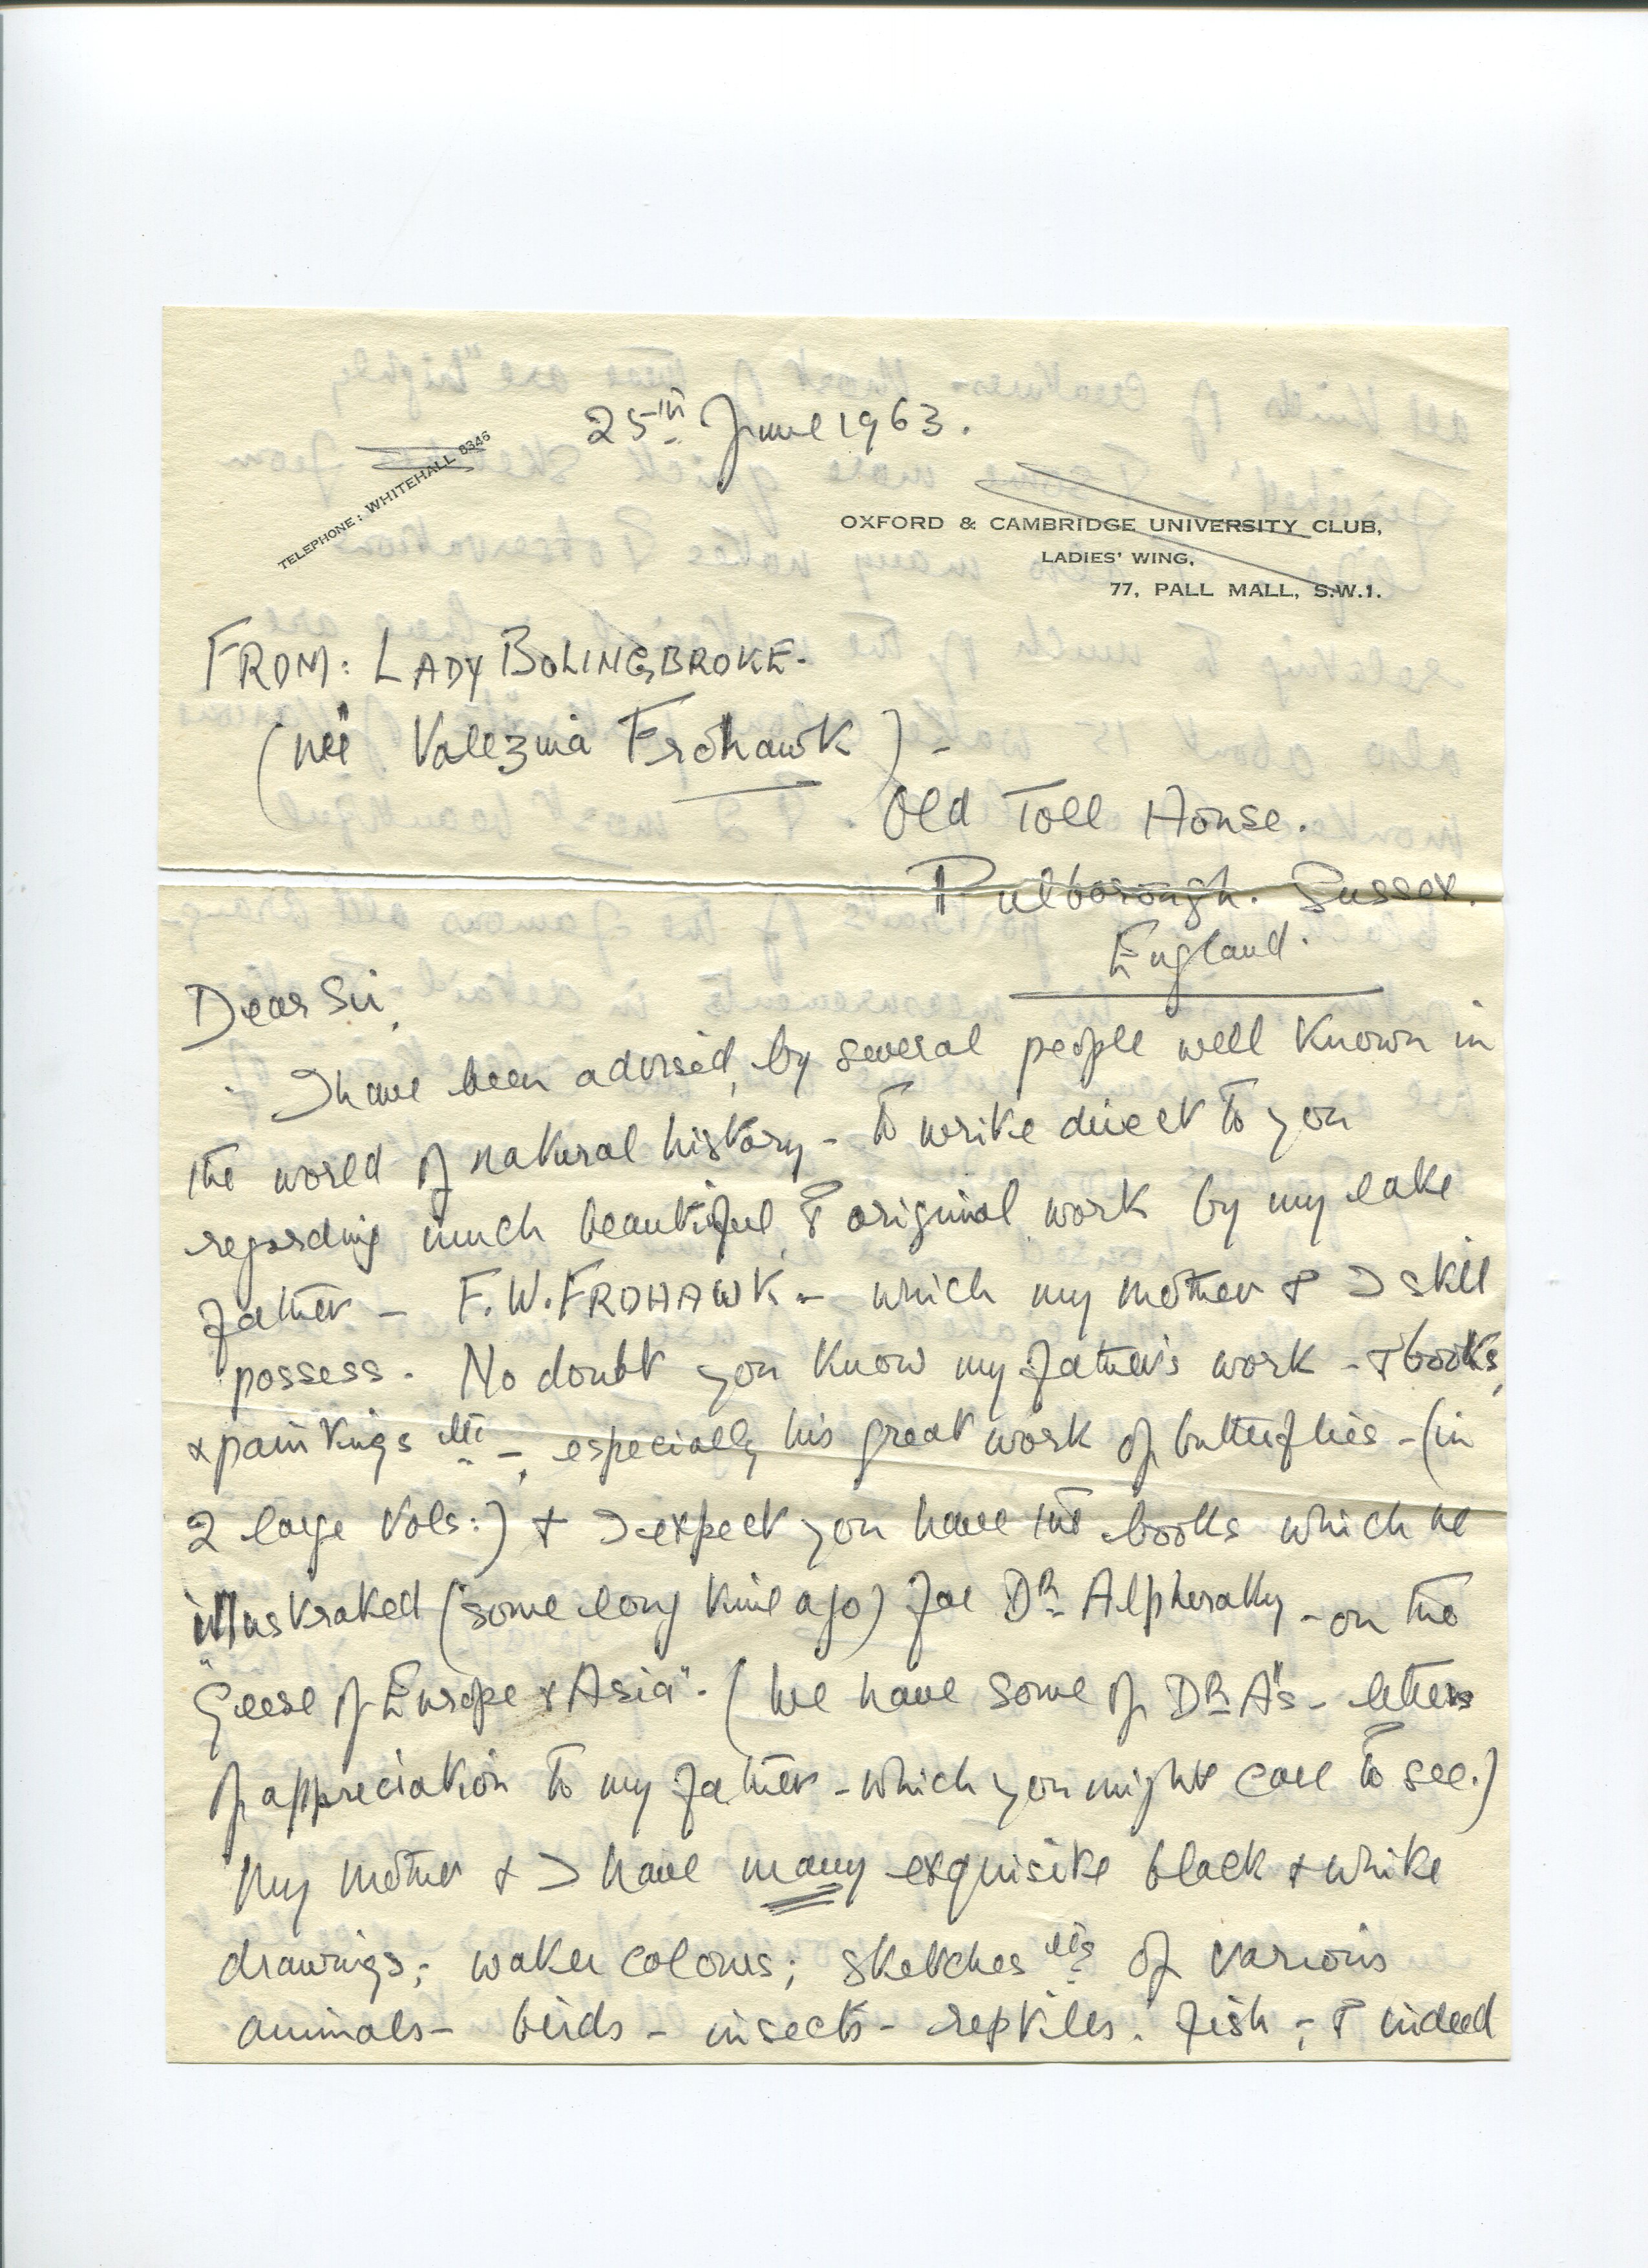 25th June 1963.
TELEPHONE: WHITEHALL 8346
OXFORD & CAMBRIDGE UNIVERSITY CLUB,
LADIES' WING,
77, PALL MALL, S.W.1.
FROM: LADY BOLINGBROKE.
(née Valezina Frohawk) -
Old Toll House.
Pulborough. Sussex.
England.
Dear Sir,
I have been advised, by several people well known in
the world of natural history - to write direct to you
regarding much beautiful & original work by my late
father - F.W. FROHAWK - which my mother & I still
possess. No doubt you know my father's work - & books,
& paintings etc: -, especially his great work of butterflies - (in
2 large Vols:) & I expect you have the books which he
illustrated (some long time ago) for Dr Alpheraky - on the
"Geese of Europe & Asia". (We have some of Dr A's - letters
of appreciation to my father - which you might care to see.)
My mother & I have many exquisite black & white
drawings; water colours; sketches etc: of various
animals - birds - insects - reptiles. fish; & indeed